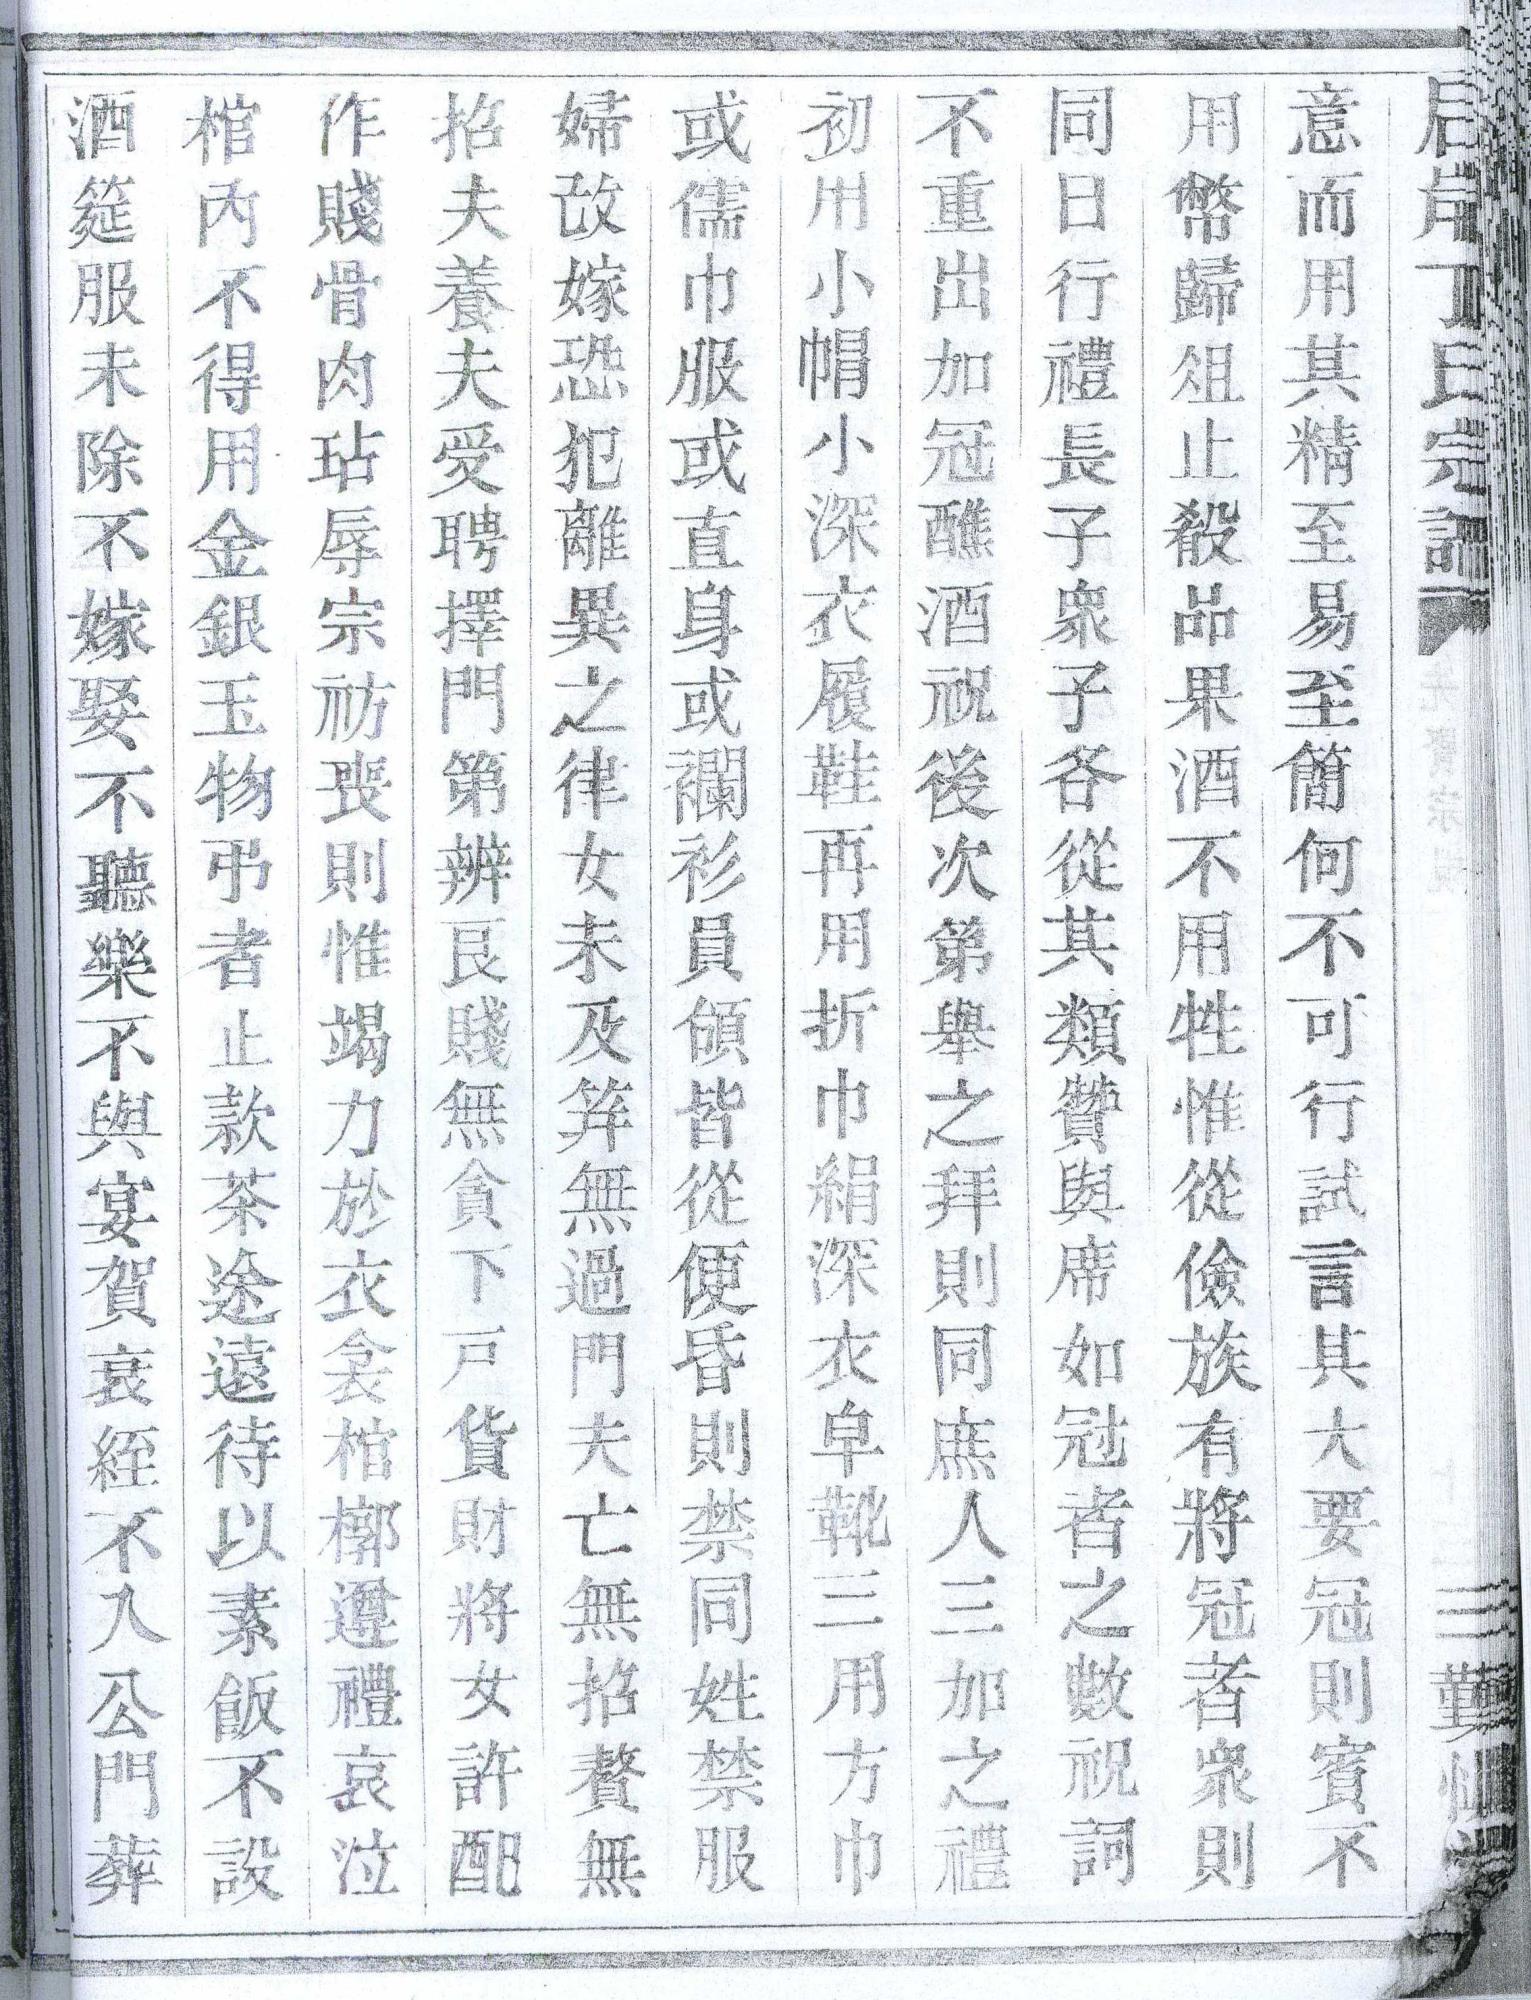 后岸丁氏宗譜
三 勤
意而用其精至易至簡何不可行試言其大要冠則賓不
用幣歸俎止殽品果酒不用牲惟從儉族有將冠者衆則
同日行禮長子衆子各從其類贊與席如冠者之數祝詞
不重出加冠醮酒祝後次第舉之拜則同庶人三加之禮
初用小帽小深衣履鞋再用折巾絹深衣皁靴三用方巾
或儒巾服或直身或襴衫員領皆從便昏則禁同姓禁服
婦改嫁恐犯離異之律女未及笄無過門夫亡無招贅無
招夫養夫愛聘擇門第辨良賤無貪下戶貨財將女許配
作賤骨肉玷辱宗祊喪則惟竭力於衣衾棺槨遵禮哀泣
棺內不得用金銀玉物弔者止款茶途遠待以素飯不設
酒筵服未除不嫁娶不聽樂不與宴賀衰絰不入公門葬